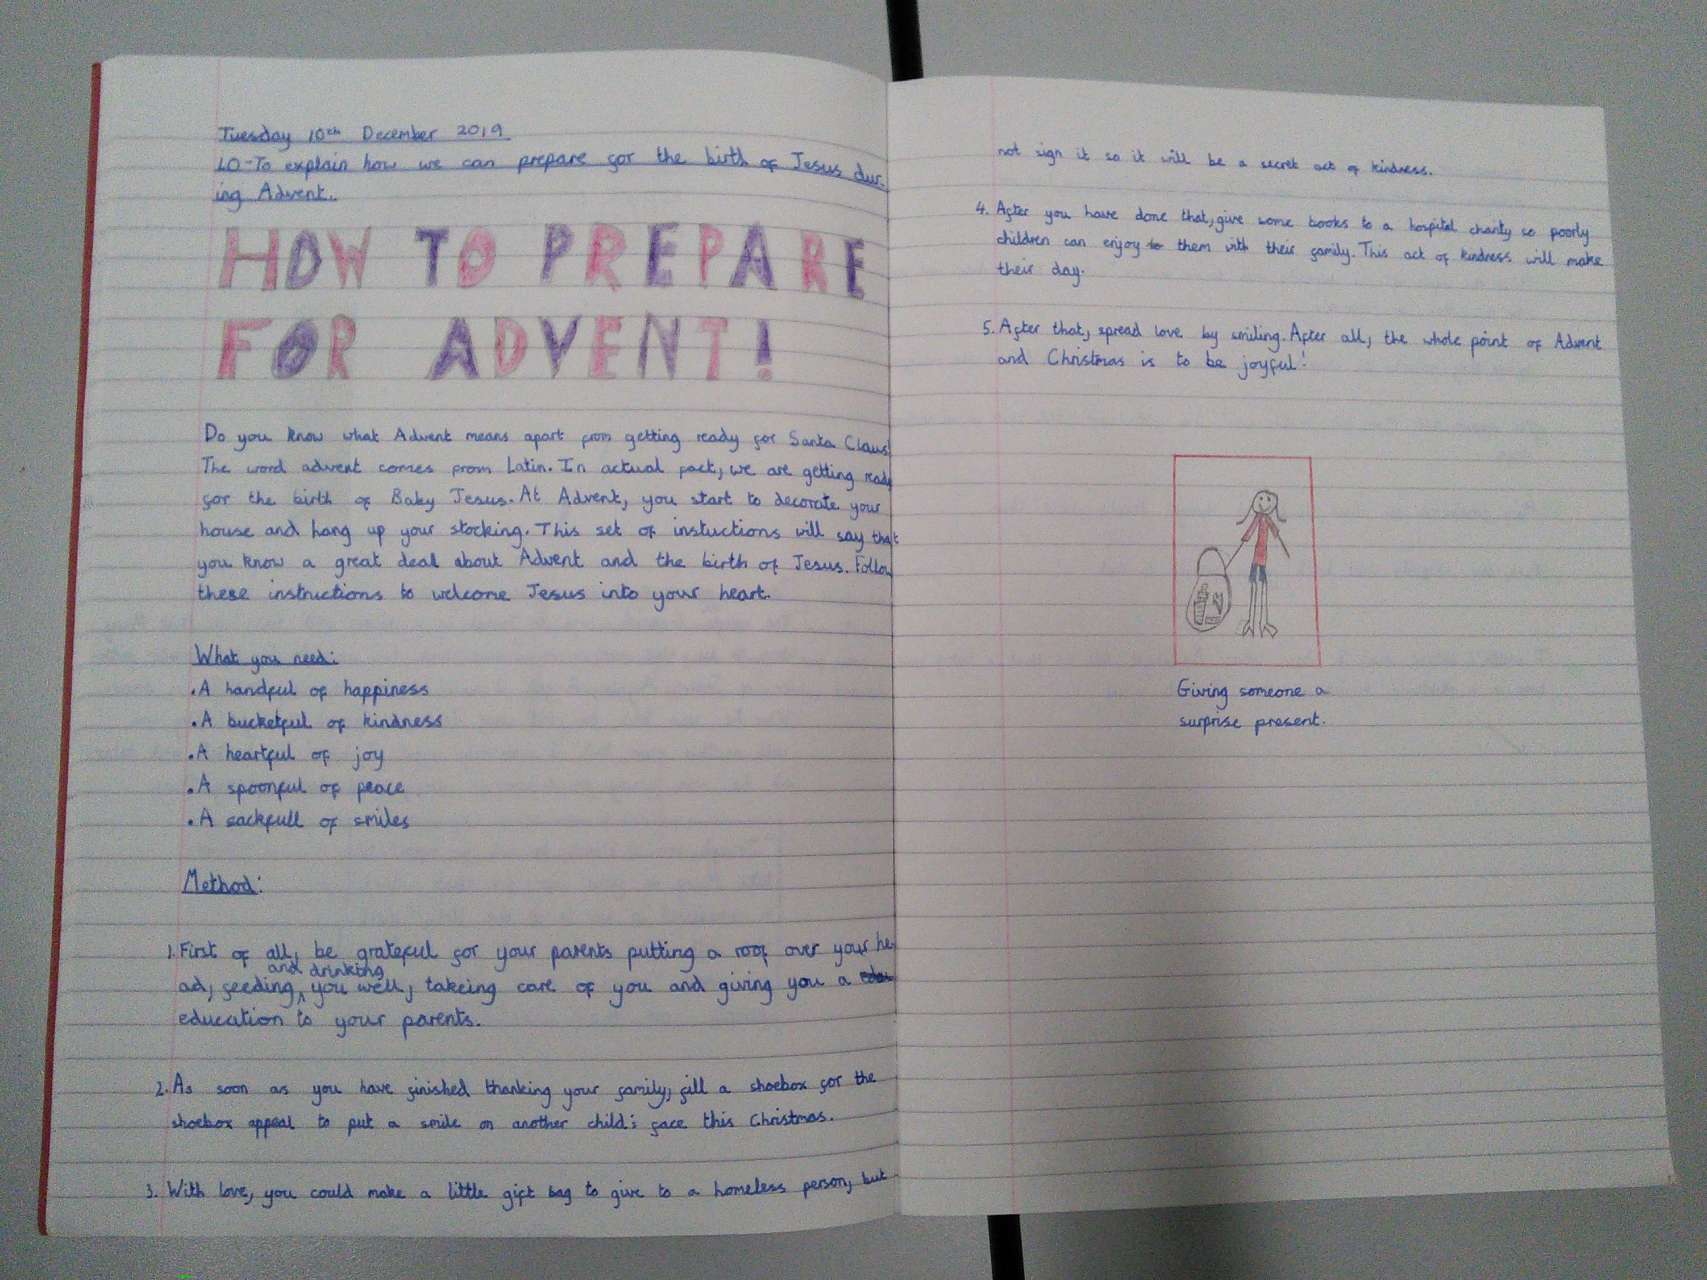 Tuesday 10th December 2019
LO-To explain how we can prepare for the birth of Jesus dur-
ing Advent.
HOW TO PREPARE
FOR ADVENT!
Do you know what Advent means apart from getting ready for Santa Claus
The word advent comes prom Latin. In actual pact, we are getting ready
for the birth of Baby Jesus. At Advent, you start to decorate your
house and hang up your stocking. This set of instuctions will say that
you know a great deal about Advent and the birth of Jesus. Follow
these instructions to welcome Jesus into your heart.
What you need:
.A handful of happiness
.A bucketful of kindness
.A heartful of joy
.A spoonful of peace
.A sackfull of smiles
Method:
1. First of all, be grateful for your parents putting a roof over your he-
and drinking
ad, feeding, you well, takeing care of you and giving you a
education to your parents.
2. As soon as you have finished thanking your family, fill a shoebox for the
shoebox appeal to put a smile on another child's face this Christmas.
3. With love, you could make a little gift bag to give to a homeless person, but
not sign it so it will be a secret act of kindness.
4. After you have done that, give some books to a hospital charity so poorly
children can enjoy to them with their family. This act of kindness will make
their day.
5. After that, spread love by smiling. After all, the whole point of Advent
and Christmas is to be joyful!
Giving someone a
surprise present.